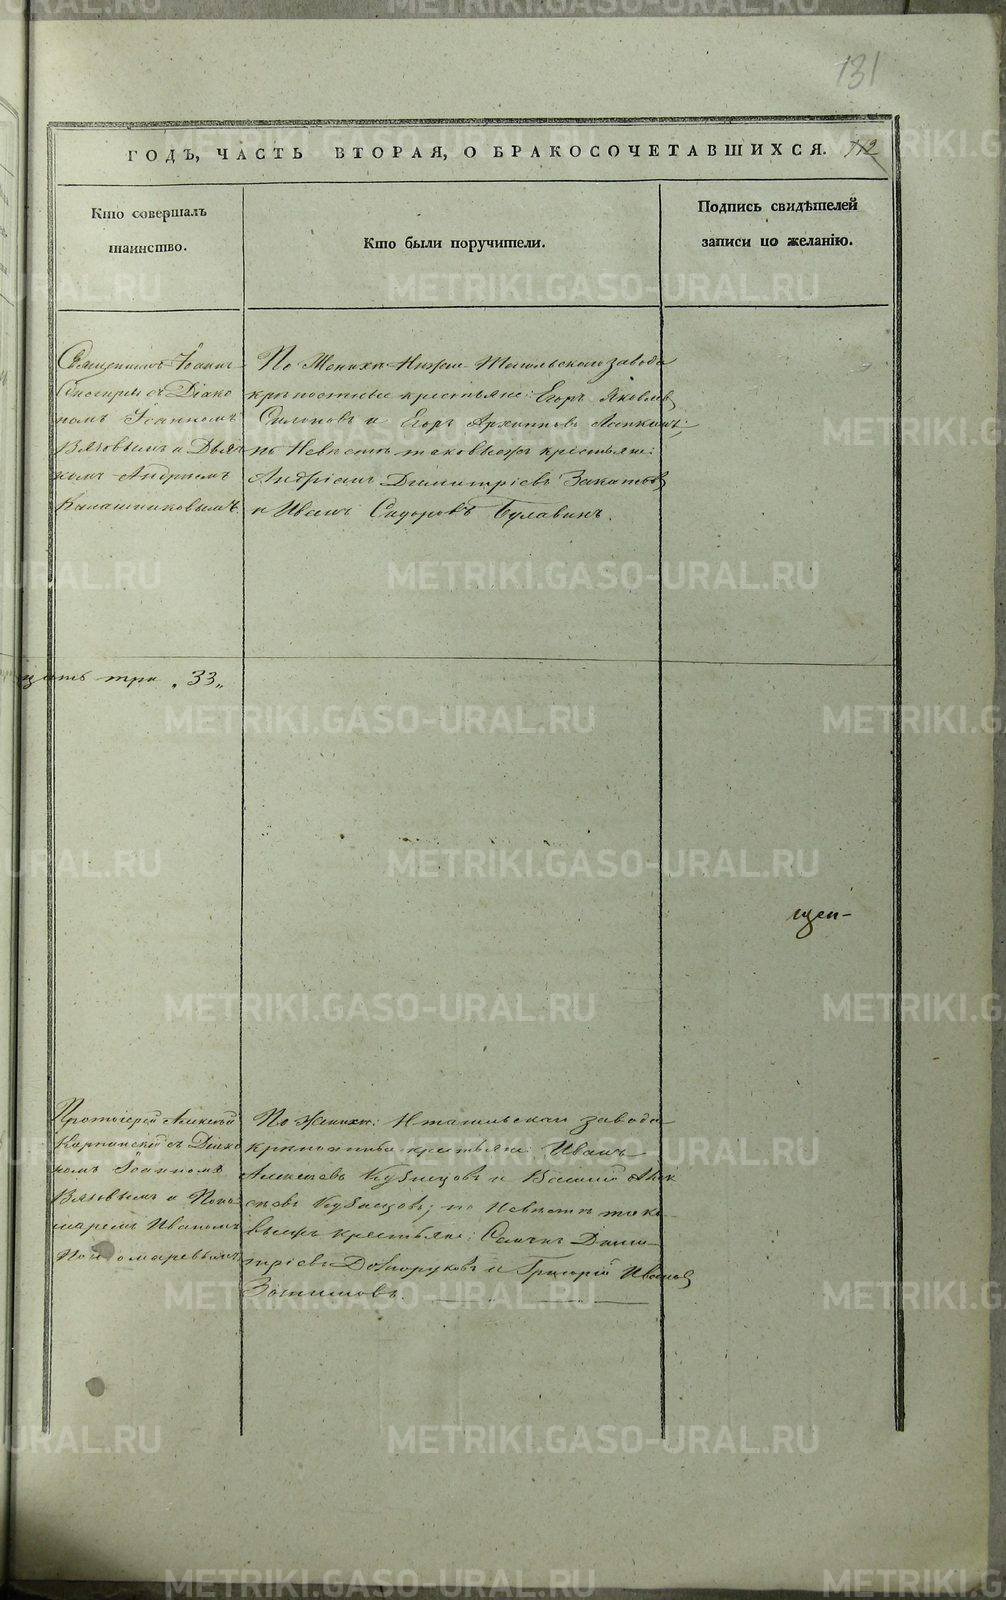 131
ГОДЪ, ЧАСТЬ ВТОРАЯ, О БРАКОСОЧЕТАВШИХСЯ. 112
Кто совершалъ
таинство.
Кто были поручители.
Подпись свидѣтелей
записи по желанію.
Священникъ Іоаннъ
съ Діако
номъ Іоанномъ
Вязовымъ и Дьяч
комъ Андреемъ
Калашниковымъ
По Женихѣ Нижне Тагильскаго завода
крѣпостные крестьяне: Егоръ Яковлев
и Егоръ Архиповъ
по Невѣстѣ таковыежъ крестьяне:
Андріанъ Димитріевъ
и Иванъ Сидоровъ Булавинъ.
цать три „33„
щен-
Протоіерей Алексѣй
Карпинскій съ Діако
номъ Іоанномъ
Вязовымъ и Поно
маремъ Иваномъ
Пономаревымъ
По Женихѣ: Нтагильскаго завода
крѣпостные крестьяне: Иванъ
Алексѣевъ Кузнецовъ и Василій Алек
сѣевъ Кузнецовъ; по Невѣстѣ тако
выежъ крестьяне: Семенъ Дими
тріевъ Долгоруковъ и Григорій Иванов
METRIKI.GASO-URAL.RU